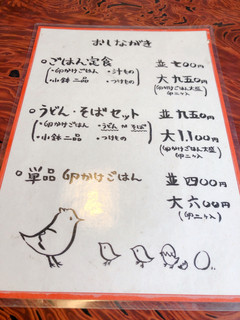 おしながき
○ごはん定食 並 七00円
・卵かけごはん ・汁もの 大 九五0円
・小鉢二品 ・つけもの (卵かけごはん大盛 卵二ヶ入)
○うどん・そばセット 並 九五0円
・卵かけごはん ・うどん or そば 大 1,100円
・小鉢二品 ・つけもの (卵かけごはん大盛 卵二ヶ入)
○単品 卵かけごはん 並 四00円
大 六00円
(卵二ヶ入)